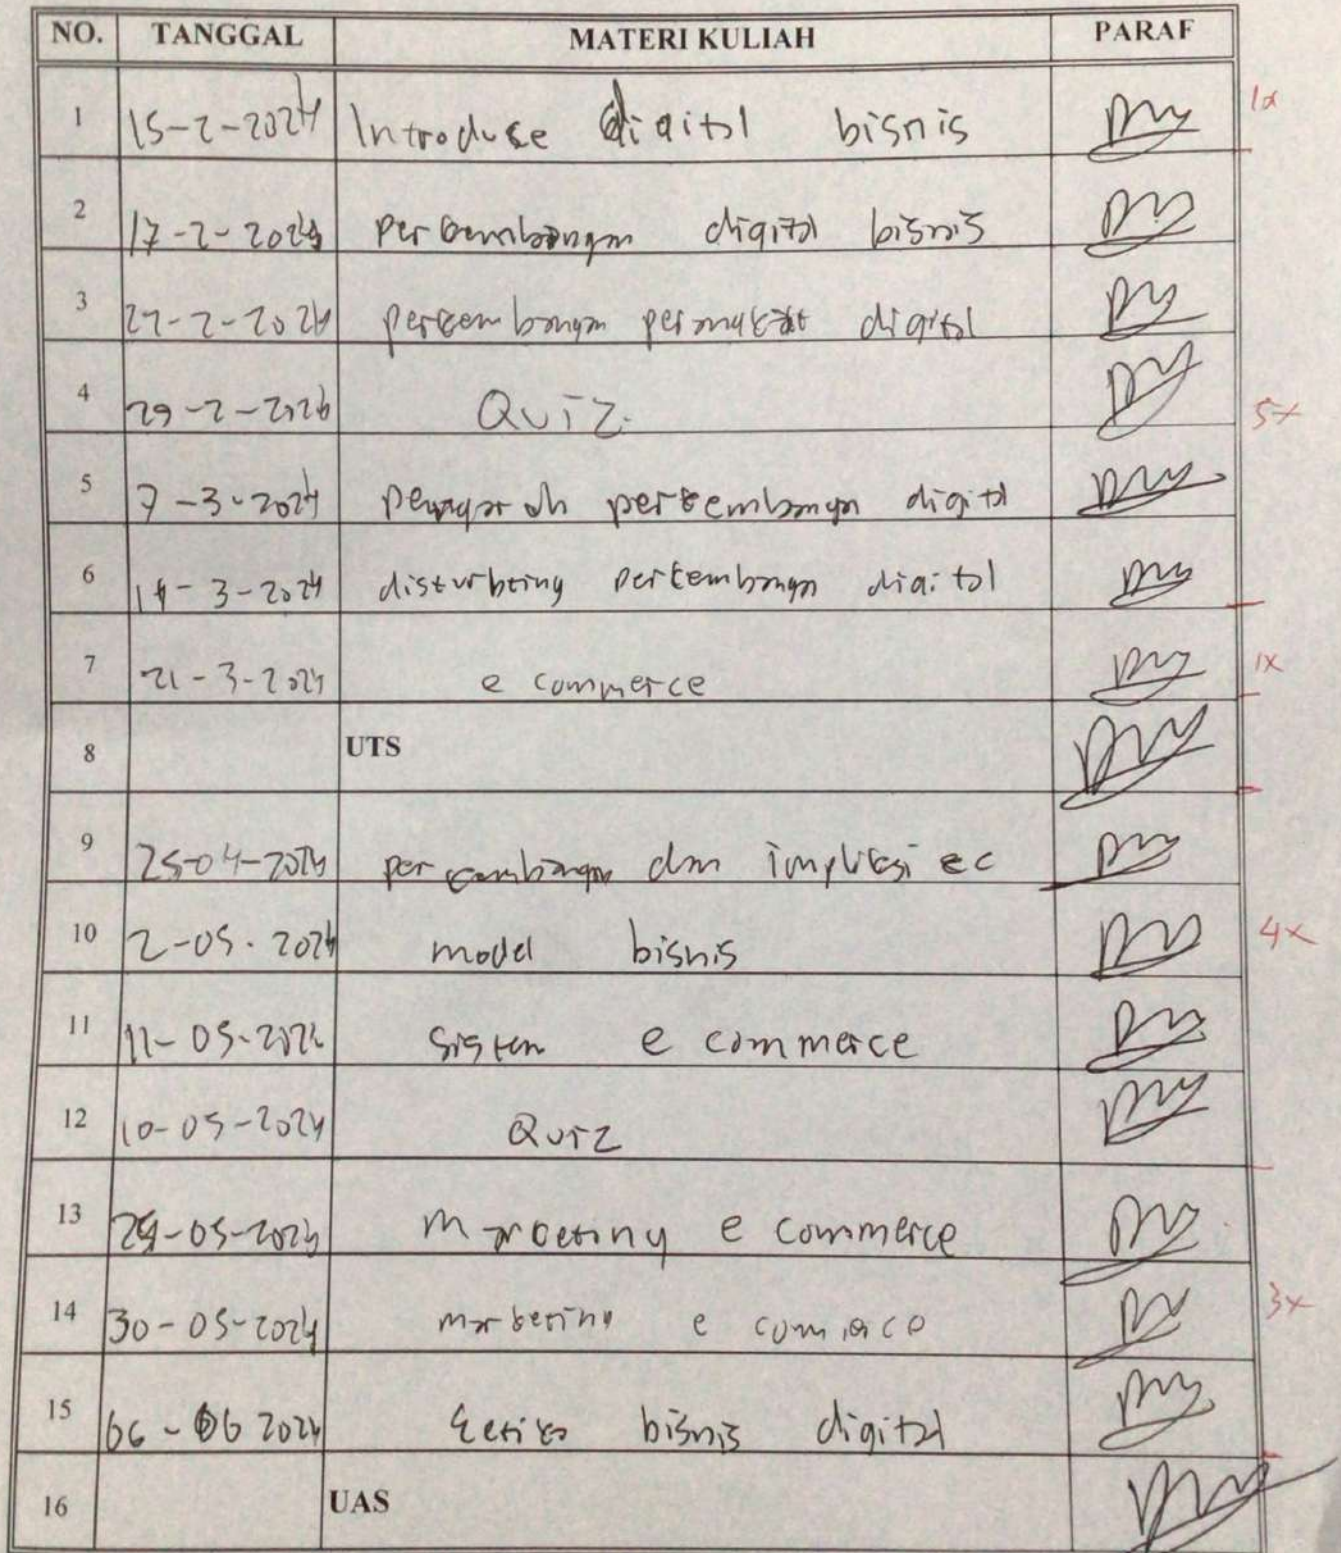 NO. TANGGAL MATERI KULIAH PARAF
1 15-2-2024 Introduse digital bisnis 1x
2 17-2-2024 perkembangan digital bisnis
3 27-2-2024 perkembangan digital
4 29-2-2024 QUIZ. 5x
5 7-3-2024 perkembangan digital
6 14-3-2024 perkembangan digital
7 21-3-2024 e commerce 1x
8 UTS
9 25-04-2024 perkembangan dan implikasi ec
10 2-05-2024 model bisnis 4x
11 11-05-2024 sistem e commerce
12 10-05-2024 QUIZ
13 -05-2024 marketing e commerce
14 30-05-2024 marketing e 3x
15 06-06 2024 bisnis digital
16 UAS